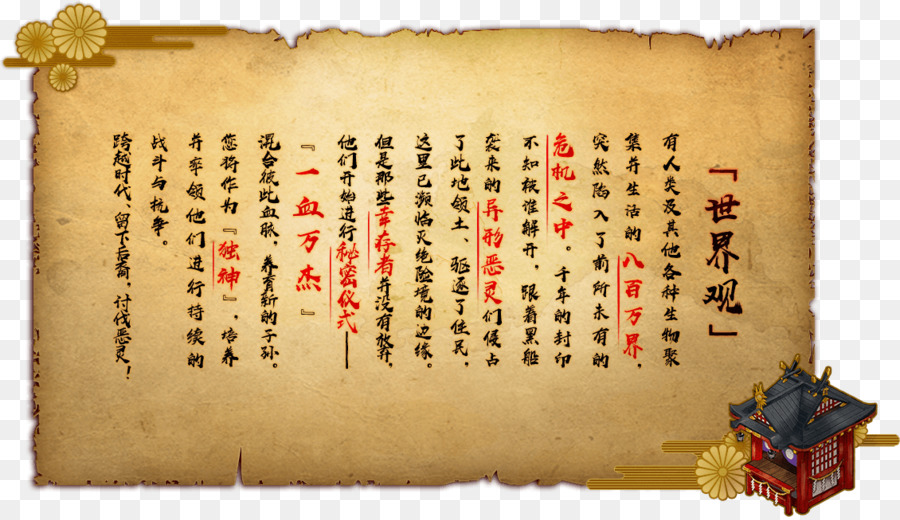 『世界观』
有人类及其他各种生物聚
集并生活的八百万界，
突然陷入了前所未有的
危机之中。千年的封印
不知被谁解开，跟着黑船
袭来的异形恶灵们侵占
了此地领土、驱逐了住民，
这里已濒临灭绝险境的边缘。
但是那些幸存者并没有放弃，
他们开始进行秘密仪式——
『一血万杰』
混合彼此血脉，养育新的子孙。
您将作为『独神』，培养
并率领他们进行持续的
战斗与抗争。
跨越时代、留下后裔，讨伐恶灵！